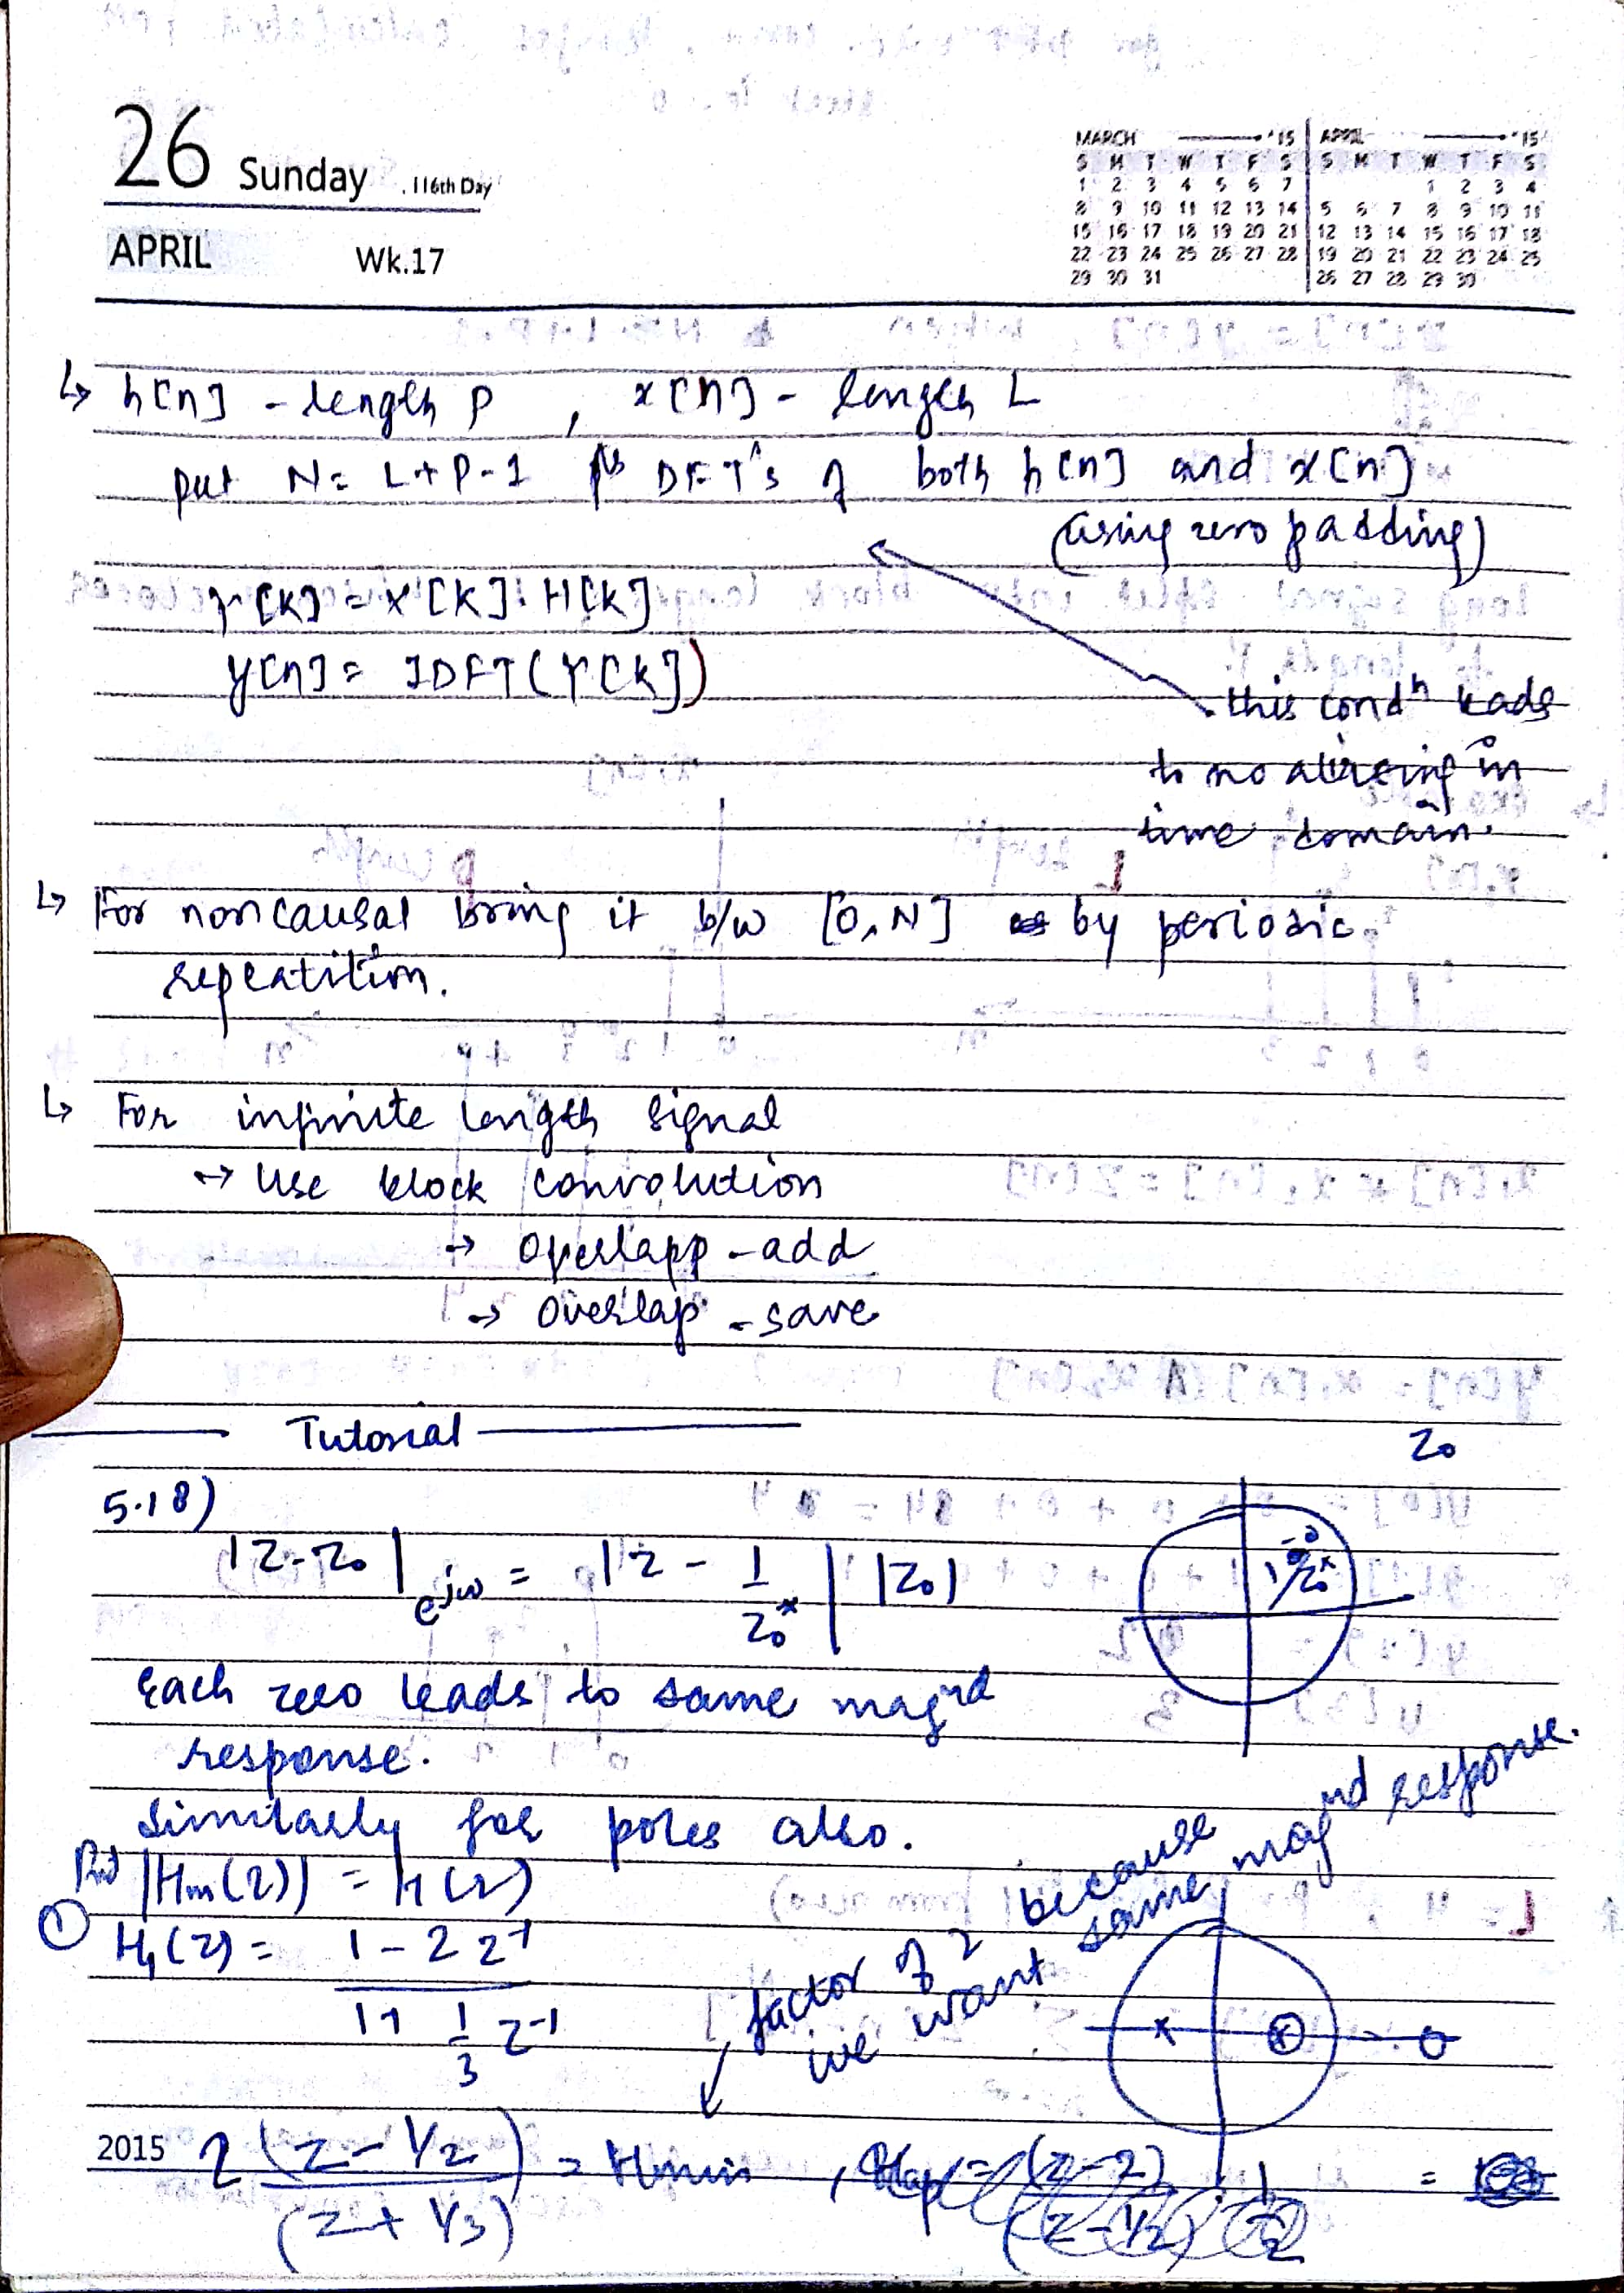 26 Sunday 116th Day
APRIL Wk.17
MARCH '15 APRIL '15
S M T W T F S S M T W T F S
1 2 3 4 5 6 7 1 2 3 4
8 9 10 11 12 13 14 5 6 7 8 9 10 11
15 16 17 18 19 20 21 12 13 14 15 16 17 18
22 23 24 25 26 27 28 19 20 21 22 23 24 25
29 30 31 26 27 28 29 30
↳ h[n] - length P , x[n] - length L
put N = L+P-1 DFT's of both h[n] and x[n]
(using zero padding)
Y[k] = X[k]. H[k]
y[n] = IDFT(Y[k])
this condⁿ leads
to no aliasing in
time domain.
↳ For noncausal bring it b/w [0,N] by periodic
repeatition.
↳ For infinite length signal
→ Use block convolution
→ Overlapp - add
→ Overlap - save
Tutorial
Z₀
5.18)
|Z-Z₀| e^jω = |Z - 1/Z₀*| |Z₀|
1/Z₀*
Each zero leads to same magnd
response.
Similarly for poles also.
|Hm(z)| = H(z)
① H₁(z) = 1 - 2z⁻¹
1+ 1/3 z⁻¹
factor of 2 because
we want same magnd response.
2015
2 (z - 1/2) / (z + 1/3) = Hmin ,